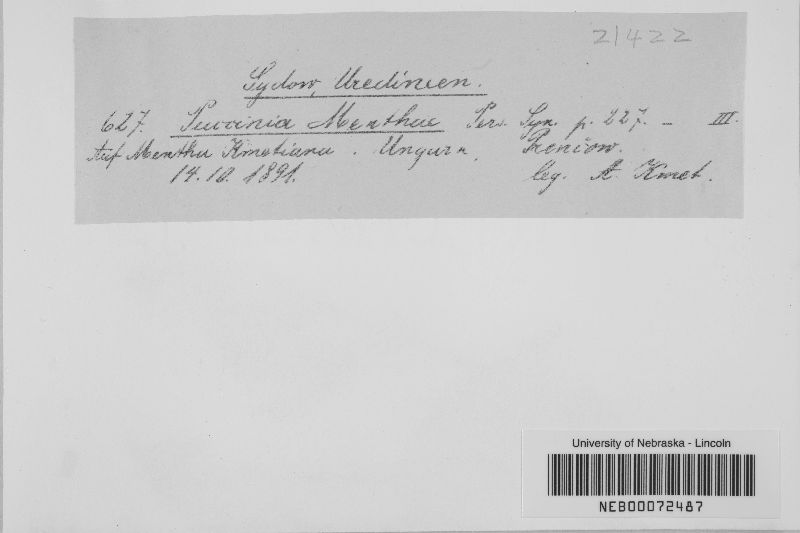 21422
Sydow, Uredineen.
627. Puccinia Menthae Pers. Syn. p. 227. — III.
Auf Mentha Kmetiana. Ungarn, Prenčow.
14.10. 1891. leg. A. Kmet.
University of Nebraska - Lincoln
NEB00072487